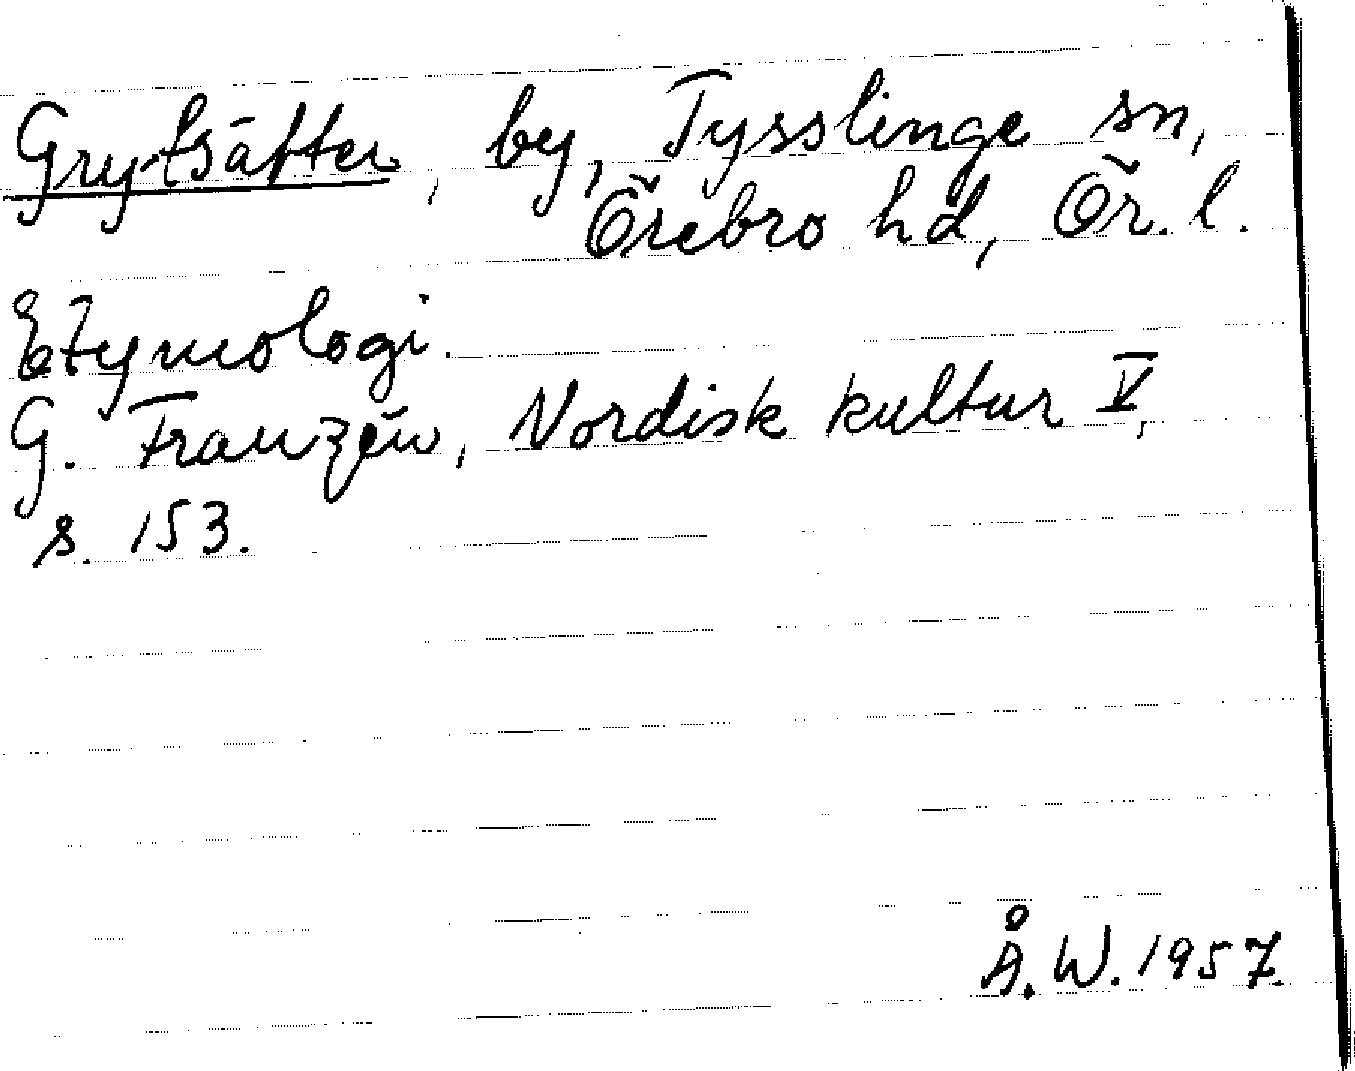 Grytsätter, by, Tysslinge sn,
Örebro hd, Ör. l.
Etymologi.
G. Franzén, Nordisk kultur V,
s. 153.
Å.W. 1957.